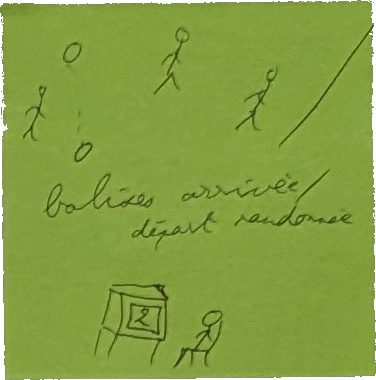 balises arrivée/
départ randonnée
2